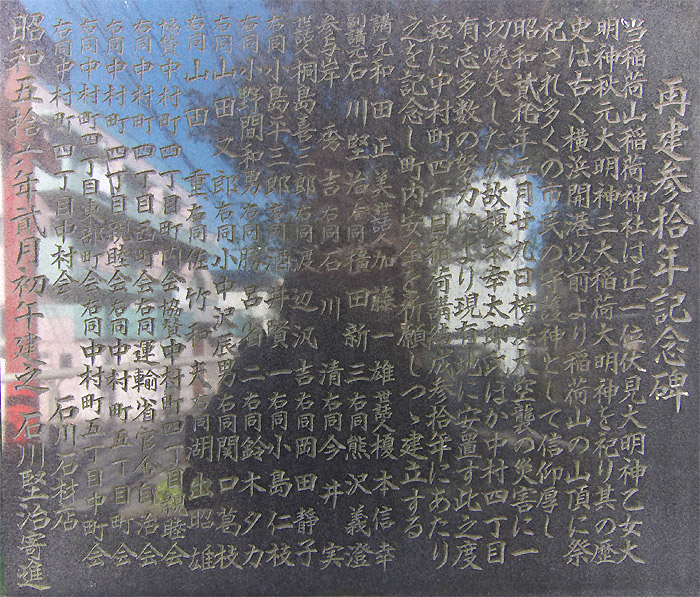 再建参拾年記念碑
当稲荷山稲荷神社は正一位伏見大明神乙女大
明神秋元大明神三大稲荷大明神を祀り其の歴
史は古く横浜開港以前より稲荷山の山頂に祭
祀され多くの市民の守護神として信仰厚し
昭和貮拾年五月廿九日横浜大空襲の災害に一
切焼失したが故榎本幸太郎氏ほか中村四丁目
有志多数の努力により現有地に安置す此之度
茲に中村町四丁目稲荷講結成参拾年にあたり
之を記念し町内安全を祈願しつゝ建立する
講元和田正美 世話人加藤一雄 世話人榎本信幸
副講元石川堅治 右同横田新三 右同熊沢義澄
参与岸秀吉 右同石川清 右同今井実
世話人桐島喜三郎 右同渡辺汎吉 右同岡田静子
右同小島平三郎 右同酒井賢一 右同小島仁枝
右同小野間和男 右同勝呂省二 右同鈴木夕カ
右同山田又郎 右同小中沢辰男 右同関口葛枝
右同山田重 右同佐竹和夫 右同湖出昭雄
協賛中村町四丁目町内会 協賛中村町四丁目親睦会
右同中村町四丁目西町会 右同運輸省官舎自治会
右同中村町四丁目親睦会 右同中村町五丁目町会
右同中村町四丁目東部町会 右同中村町五丁目中町会
右同中村町四丁目中村会 石川石材店
昭和五拾六年貮月初午建之 石川堅治寄進